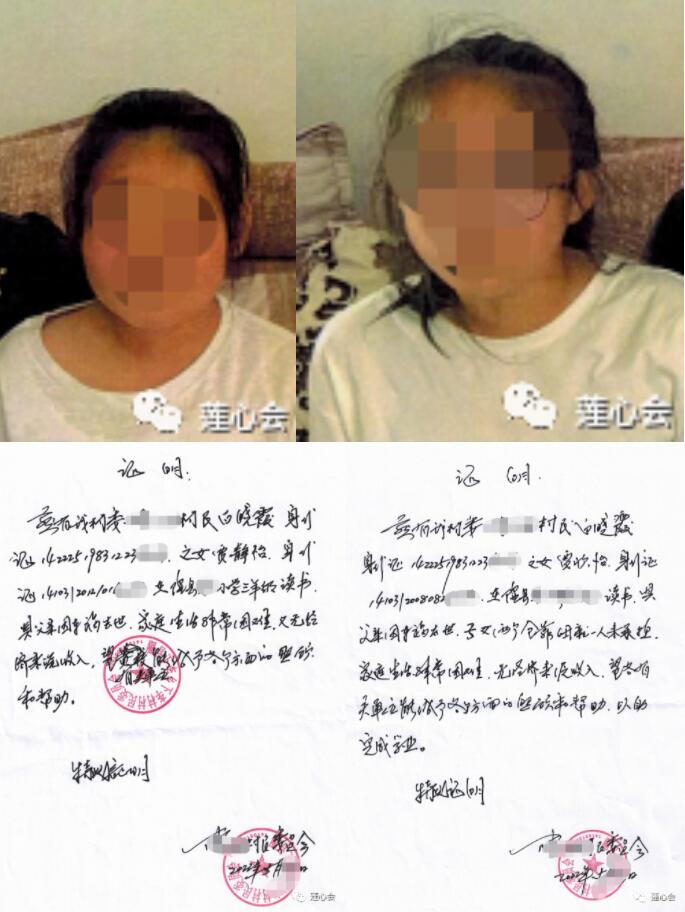 莲心会
莲心会
证明:
兹有我村委村民白晓霞 身份
证 14222519831223 之女贾静怡 身份
证 14103120121016 在隰县小学三年级读书
其父因车祸去世,家庭生活非常困难,又无经
济来源收入,望能给予各个方面的照顾
有关单位
和帮助。
特此证明
村民委员会
2022年5月日
莲心会
证明.
兹有我村委村民白晓霞
身份证 1422251983123 之女贾怡,身份证
1410312008082 在隰县读书,其
父车祸去世,子女两个全靠母亲一人来承担,
家庭生活非常困难,无经济来源收入,望各有
关单位能给予各方面的照顾和帮助,以助
完成学业。
特此证明
村民委员会
2022年日
莲心会